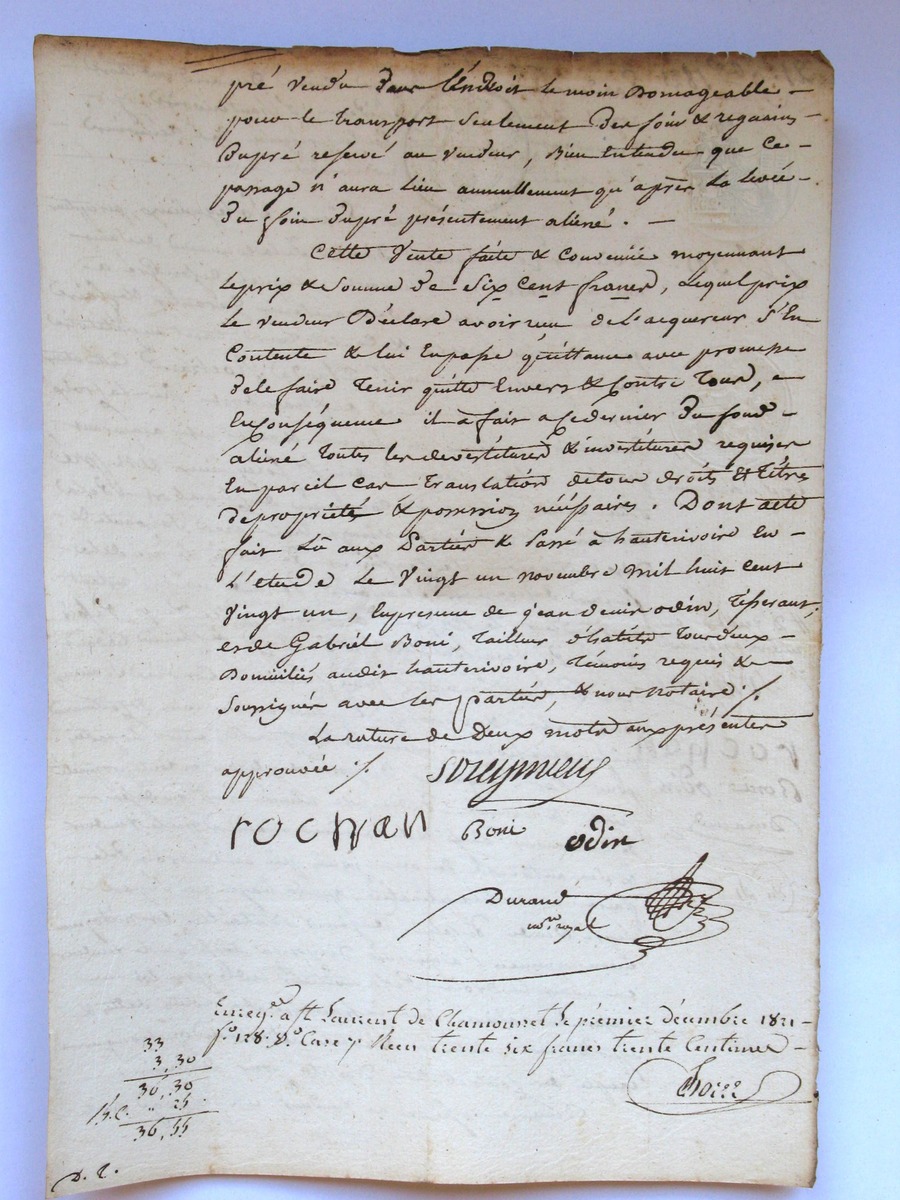 pré vendu dans l'endroit le moin Domageable -
pour le transport seulement des foins & regains -
Dupré reservé au vendeur, Bien Entendu que Ce -
passage n'aura Lieu annuellement qu'après La levée -
Du foin Dupré présentement aliené. -
Cette Vente faite & Convenüe moyennant
Le prix & Somme De Six Cent francs, Lequel prix
Le vendeur Déclare avoir reçu de L'acquereur S'En
Contente & lui En passe quittance avec promesse
De le faire Tenir quitte Envers & Contre Tous,
En Conséquence il a fait a Ce dernier Du fond -
aliéné Toutes les devestitures & investitures requises
En pareil cas Translation de tous droits Et Titres
de propriétés & possession nécéssaires. Dont acte
fait Lû aux Parties & Passé à hauterivoire En -
L'etude Le Vingt un novembre mil huit cent
Vingt un, En presence de jean denis odin, Tisserant,
et de Gabriel Boni, Tailleur d'habits Tous deux -
Domiciliés audit hauterivoire, Témoins requis &
Soussignés avec les parties, & nous Notaire ./.
La rature de Deux mots aux présentes
approuvée ./.
rochan Boni odin
Durand
no.re royal
Enreg.é a St Laurent de Chamousset le premier décembre 1821 -
f.o 128. v.o Case 7 Recu trente six francs trente Centimes -
33
3,30
36,30
" 25
36,55
D. 2.